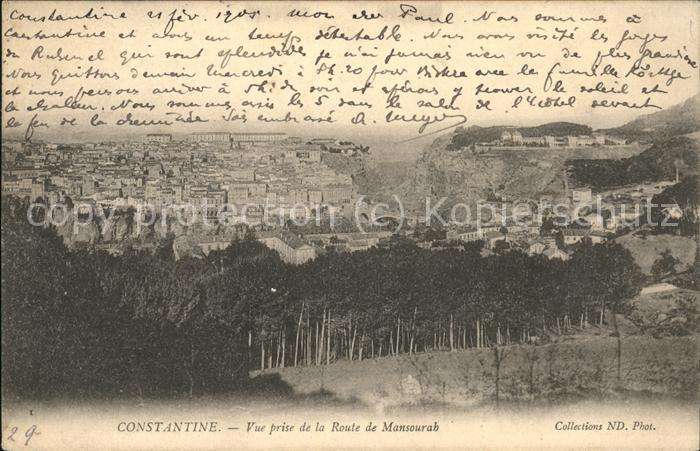 Constantine 21 fév. 1905. mon cher Paul. Nous sommes à
Constantine et avons un temps détestable. Nous avons visité les gorges
du Rummel qui sont splendides je n'ai jamais rien vu de plus grandiose
Nous quittons demain mercredi à 8h.20 pour Biskra avec la famille
et nous pensons arriver à 5h. du soir et espérons y trouver le soleil et
la chaleur. Nous sommes assis les 5 dans le salon de l'Hôtel devant
le feu de la cheminée. Sois embrassé A. Meyer
copy protection © Kopierschutz
CONSTANTINE. — Vue prise de la Route de Mansourah
Collections ND. Phot.
29